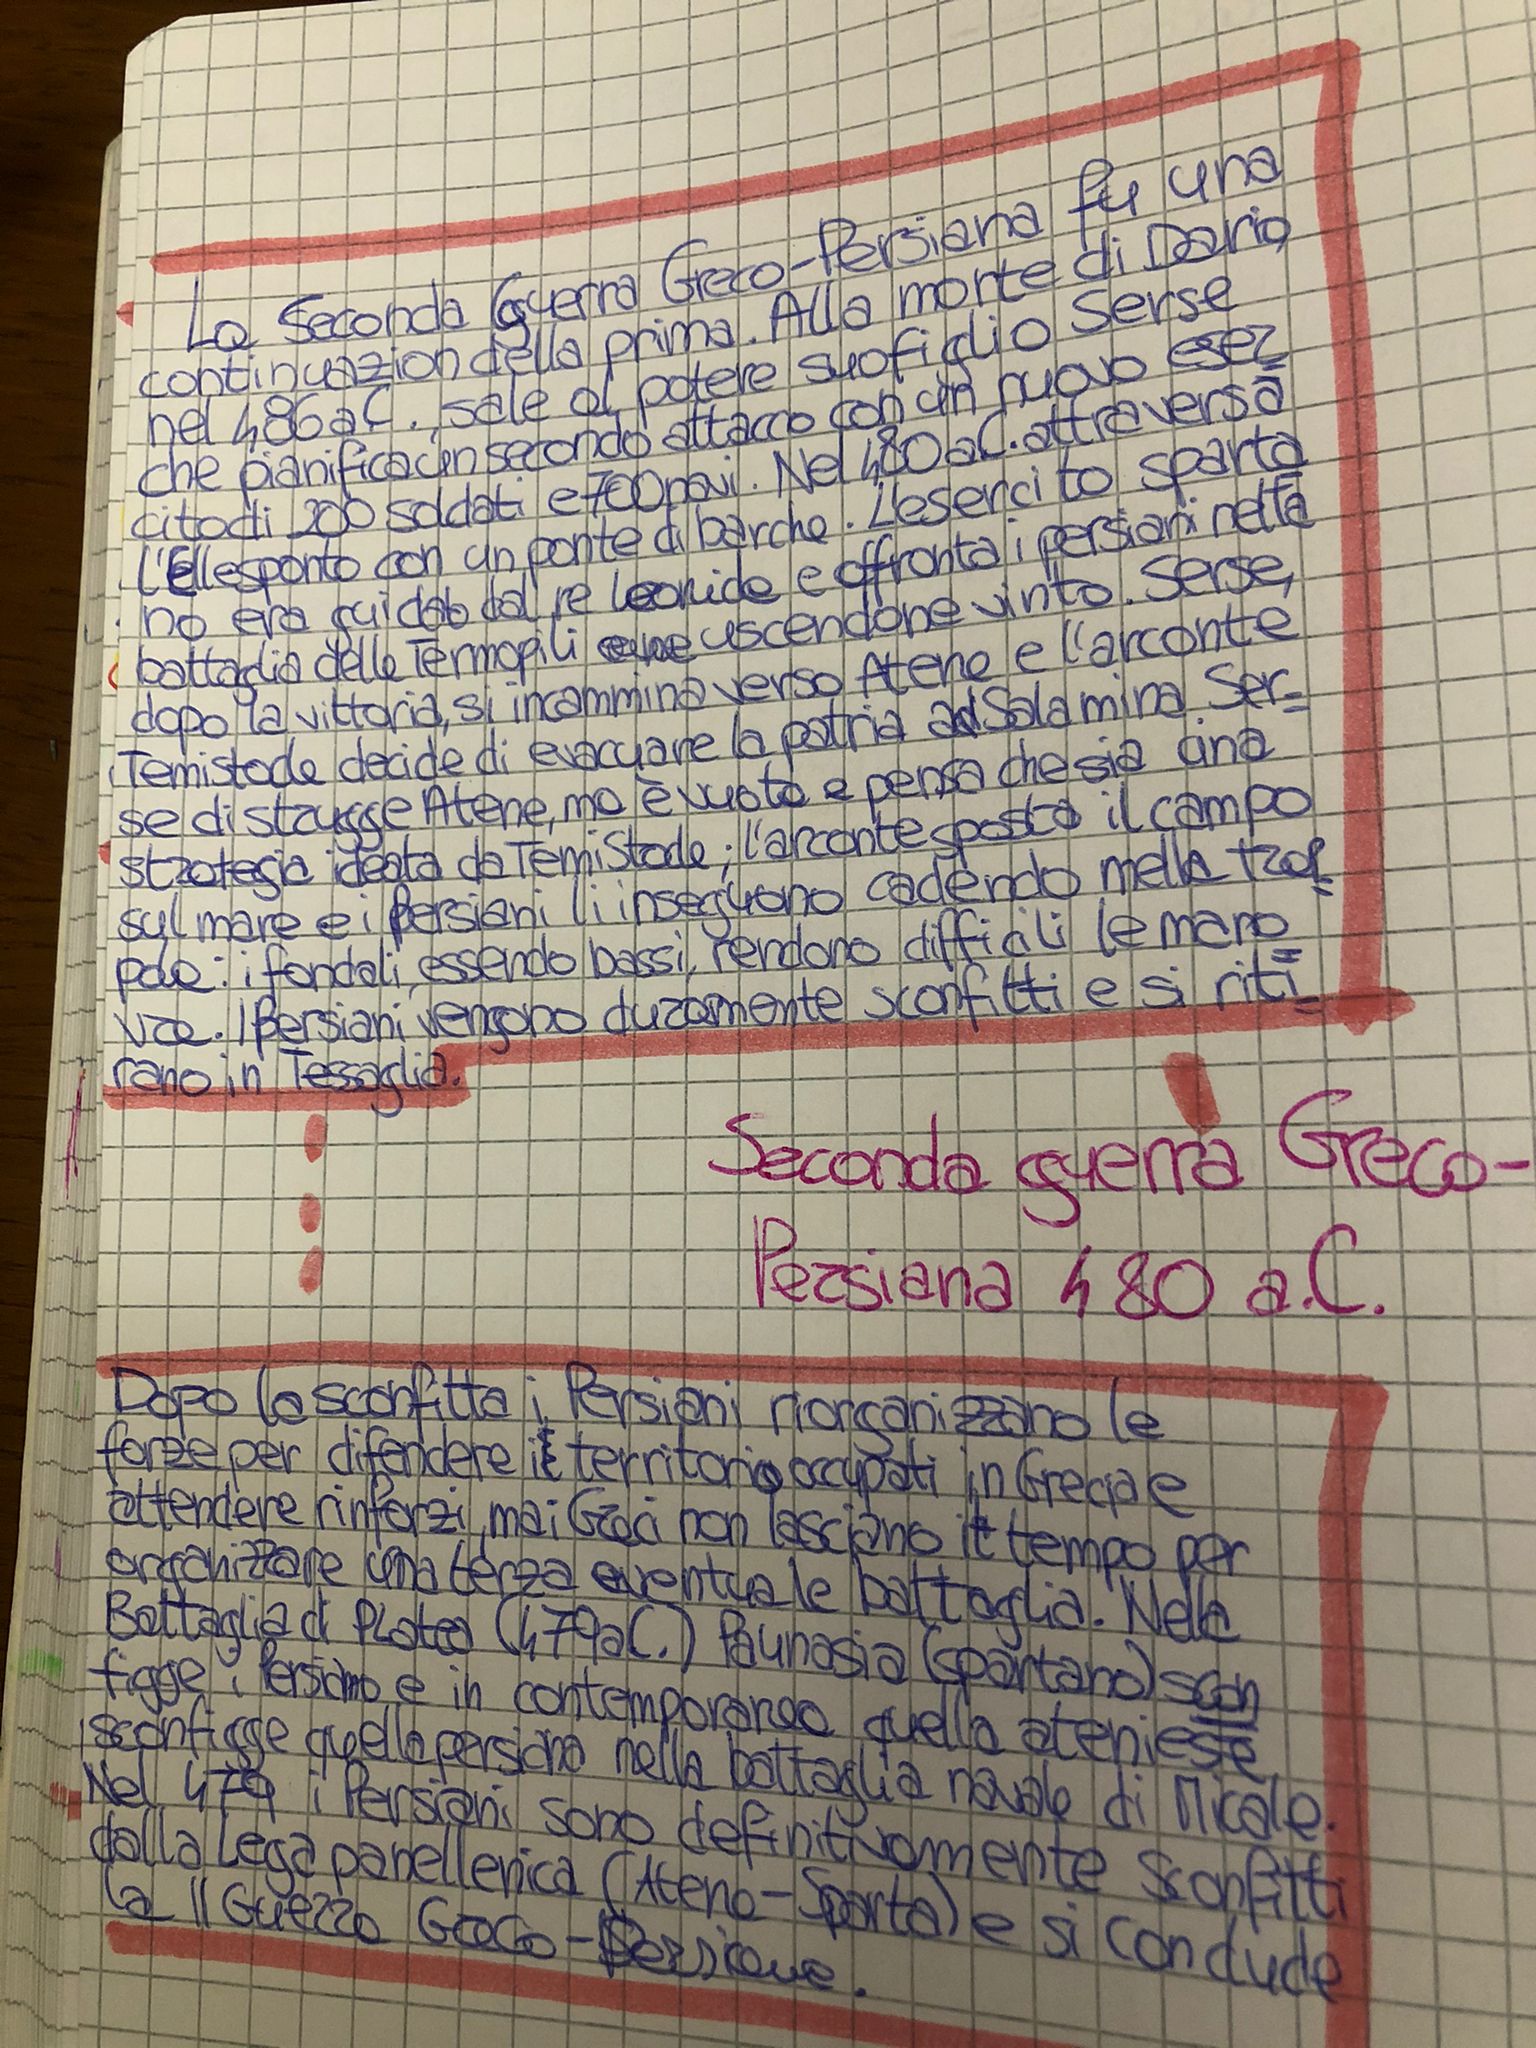 La Seconda Guerra Greco-Persiana fu una
continuazion della prima. Alla morte di Dario,
nel 486 a.C., sale al potere suo figlio Serse
che pianifica un secondo attacco con un nuovo eser-
cito di 200 soldati e 700 navi. Nel 480 a.C. attraversa
l'Ellesponto con un ponte di barche. L'esercito sparta
no era guidato dal re Leonide e affronta i persiani nella
battaglia delle Termopili uscendone vinto. Serse,
dopo la vittoria, si incammina verso Atene e l'arconte
Temistocle decide di evacuare la patria ad Salamina. Ser-
se distrugge Atene, ma è vuota e pensa che sia una
strategia ideata da Temistocle; l'arconte sposta il campo
sul mare e i Persiani li inseguono cadendo nella trap-
pola: i fondali, essendo bassi, rendono difficili le mano-
vre. I Persiani vengono duramente sconfitti e si riti-
rano in Tessaglia.
Seconda guerra Greco-
Persiana 480 a.C.
Dopo la sconfitta i Persiani riorganizzano le
forze per difendere il territorio occupati in Grecia e
attendere rinforzi, ma i Greci non lasciano il tempo per
organizzare una terza eventuale battaglia. Nella
Battaglia di Platea (479 a.C.) Paunasia (spartano) scon
figge i Persiano, e in contemporanea quella ateniese
sconfigge quella persiana nella battaglia navale di Micale.
Nel 479 i Persiani sono definitivamente sconfitti
dalla Lega panellenica (Atene-Sparta) e si conclude
la II Guerra Greco-Persiana.